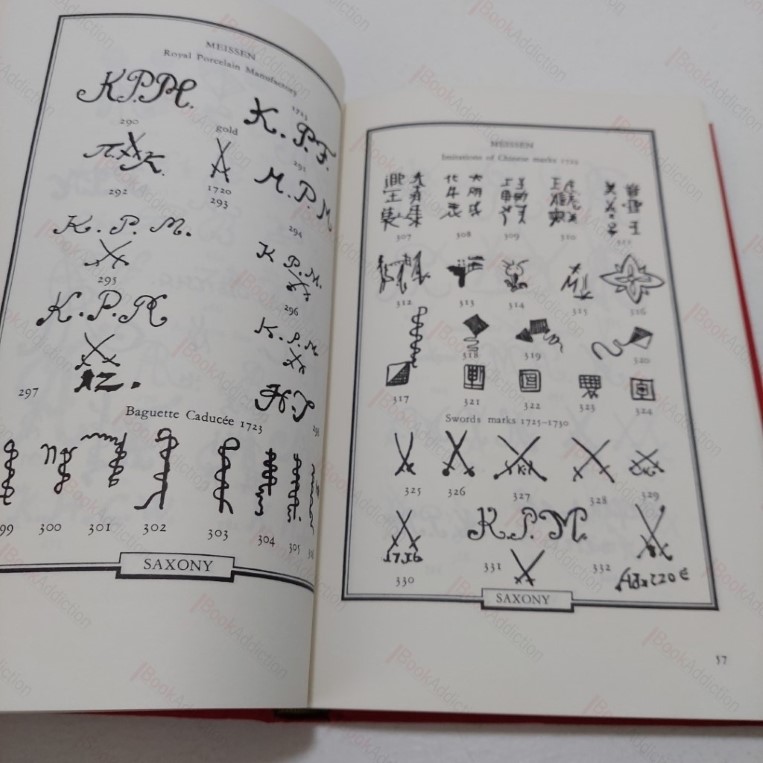 MEISSEN
Royal Porcelain Manufactory
1723
K.P.M.
290
gold
K.P.F.
291
292
1720
293
M.P.M
294
K.P.M.
295
K.P.M.
296
K.P.M
297
K.P.M
298
Baguette Caducée 1723
99 300 301 302 303 304 305
SAXONY
MEISSEN
Imitations of Chinese marks 1725
307 308 309 310 311
312 313 314 315 316
318 319 320
317 321 322 323 324
Swords marks 1725–1730
325 326 327 328 329
K.P.M.
330 331 332
SAXONY
57
BookAddiction